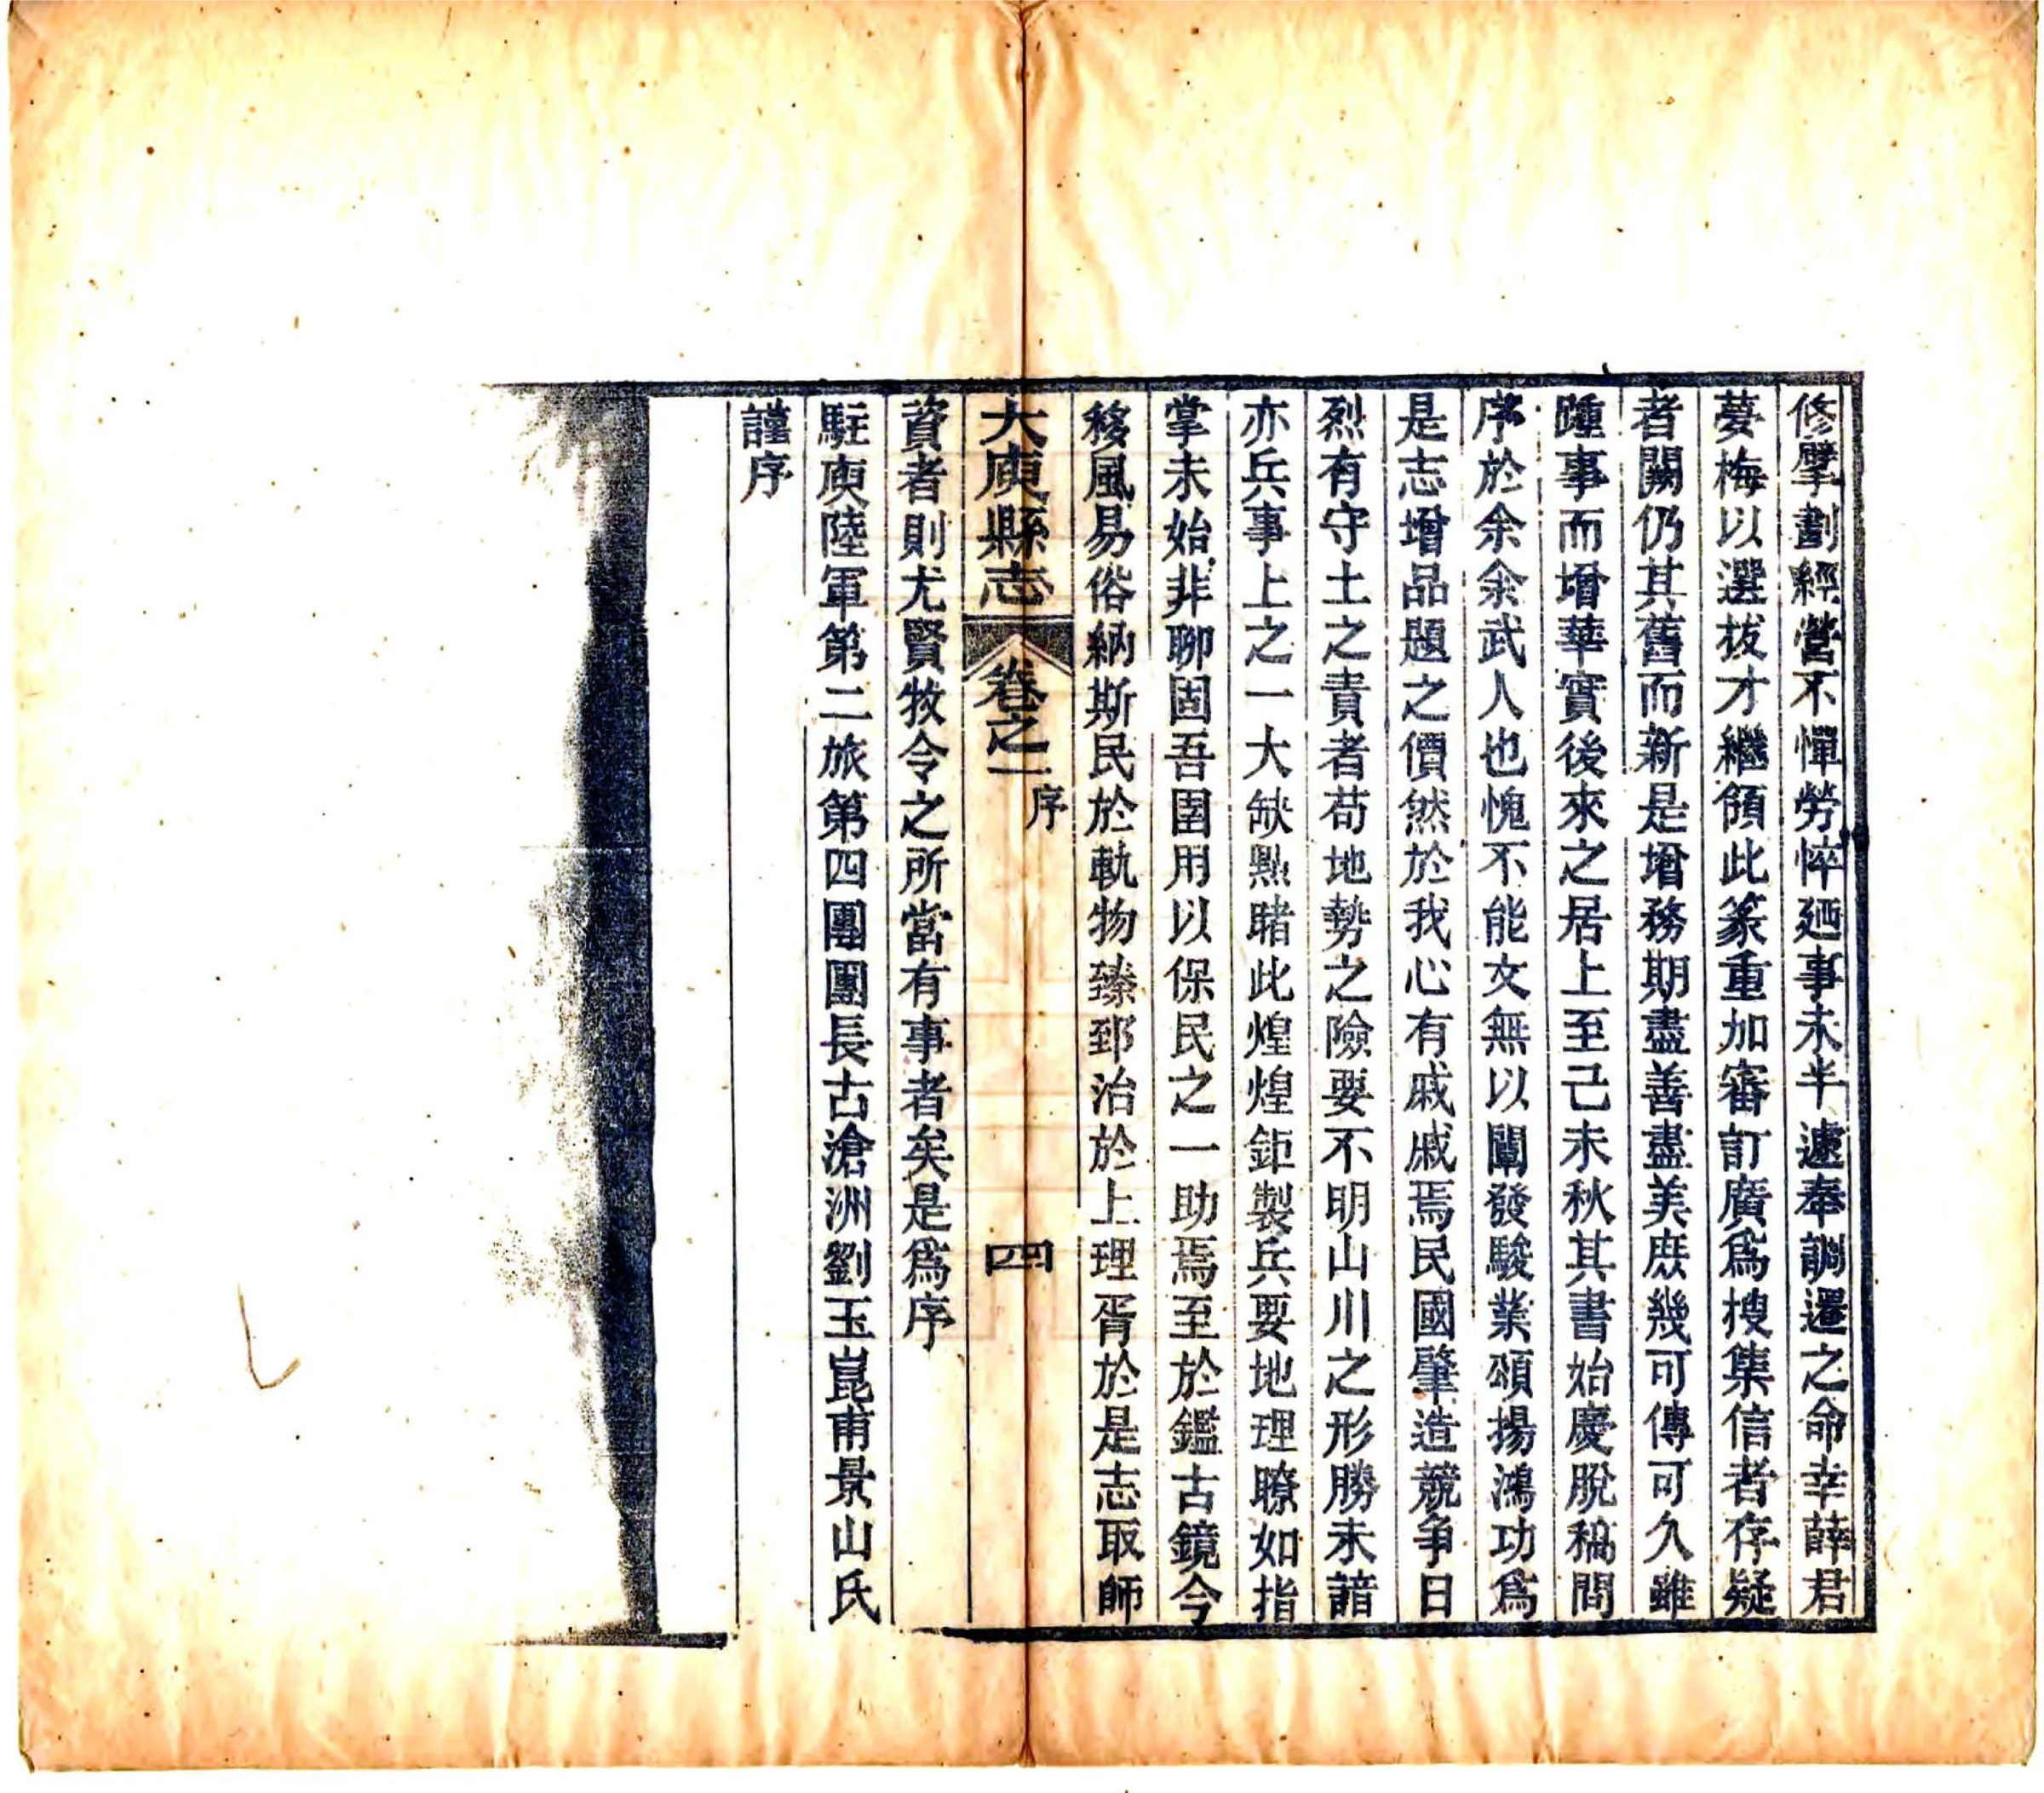 修擘劃經營不憚勞悴廼事未半遽奉調遷之命幸薛君
夢梅以選拔才繼領此篆重加審訂廣爲搜集信者存疑
者闕仍其舊而新是增務期盡善盡美庶幾可傳可久雖
踵事而增華實後來之居上至己未秋其書始慶脫稿問
序於余余武人也愧不能文無以闡發駿業頌揚鴻功爲
是志增品題之價然於我心有戚戚焉民國肇造競爭日
烈有守土之責者苟地勢之險要不明山川之形勝未諳
亦兵事上之一大缺㸃睹此煌煌鉅製兵要地理瞭如指
掌未始非聊固吾圉用以保民之一助焉至於鑑古鏡今
移風易俗納斯民於軌物臻郅治於上理胥於是志取師
大庾縣志 卷之一 序 四
資者則尤賢牧令之所當有事者矣是爲序
駐庾陸軍第二旅第四團團長古滄洲劉玉崑甫景山氏
謹序